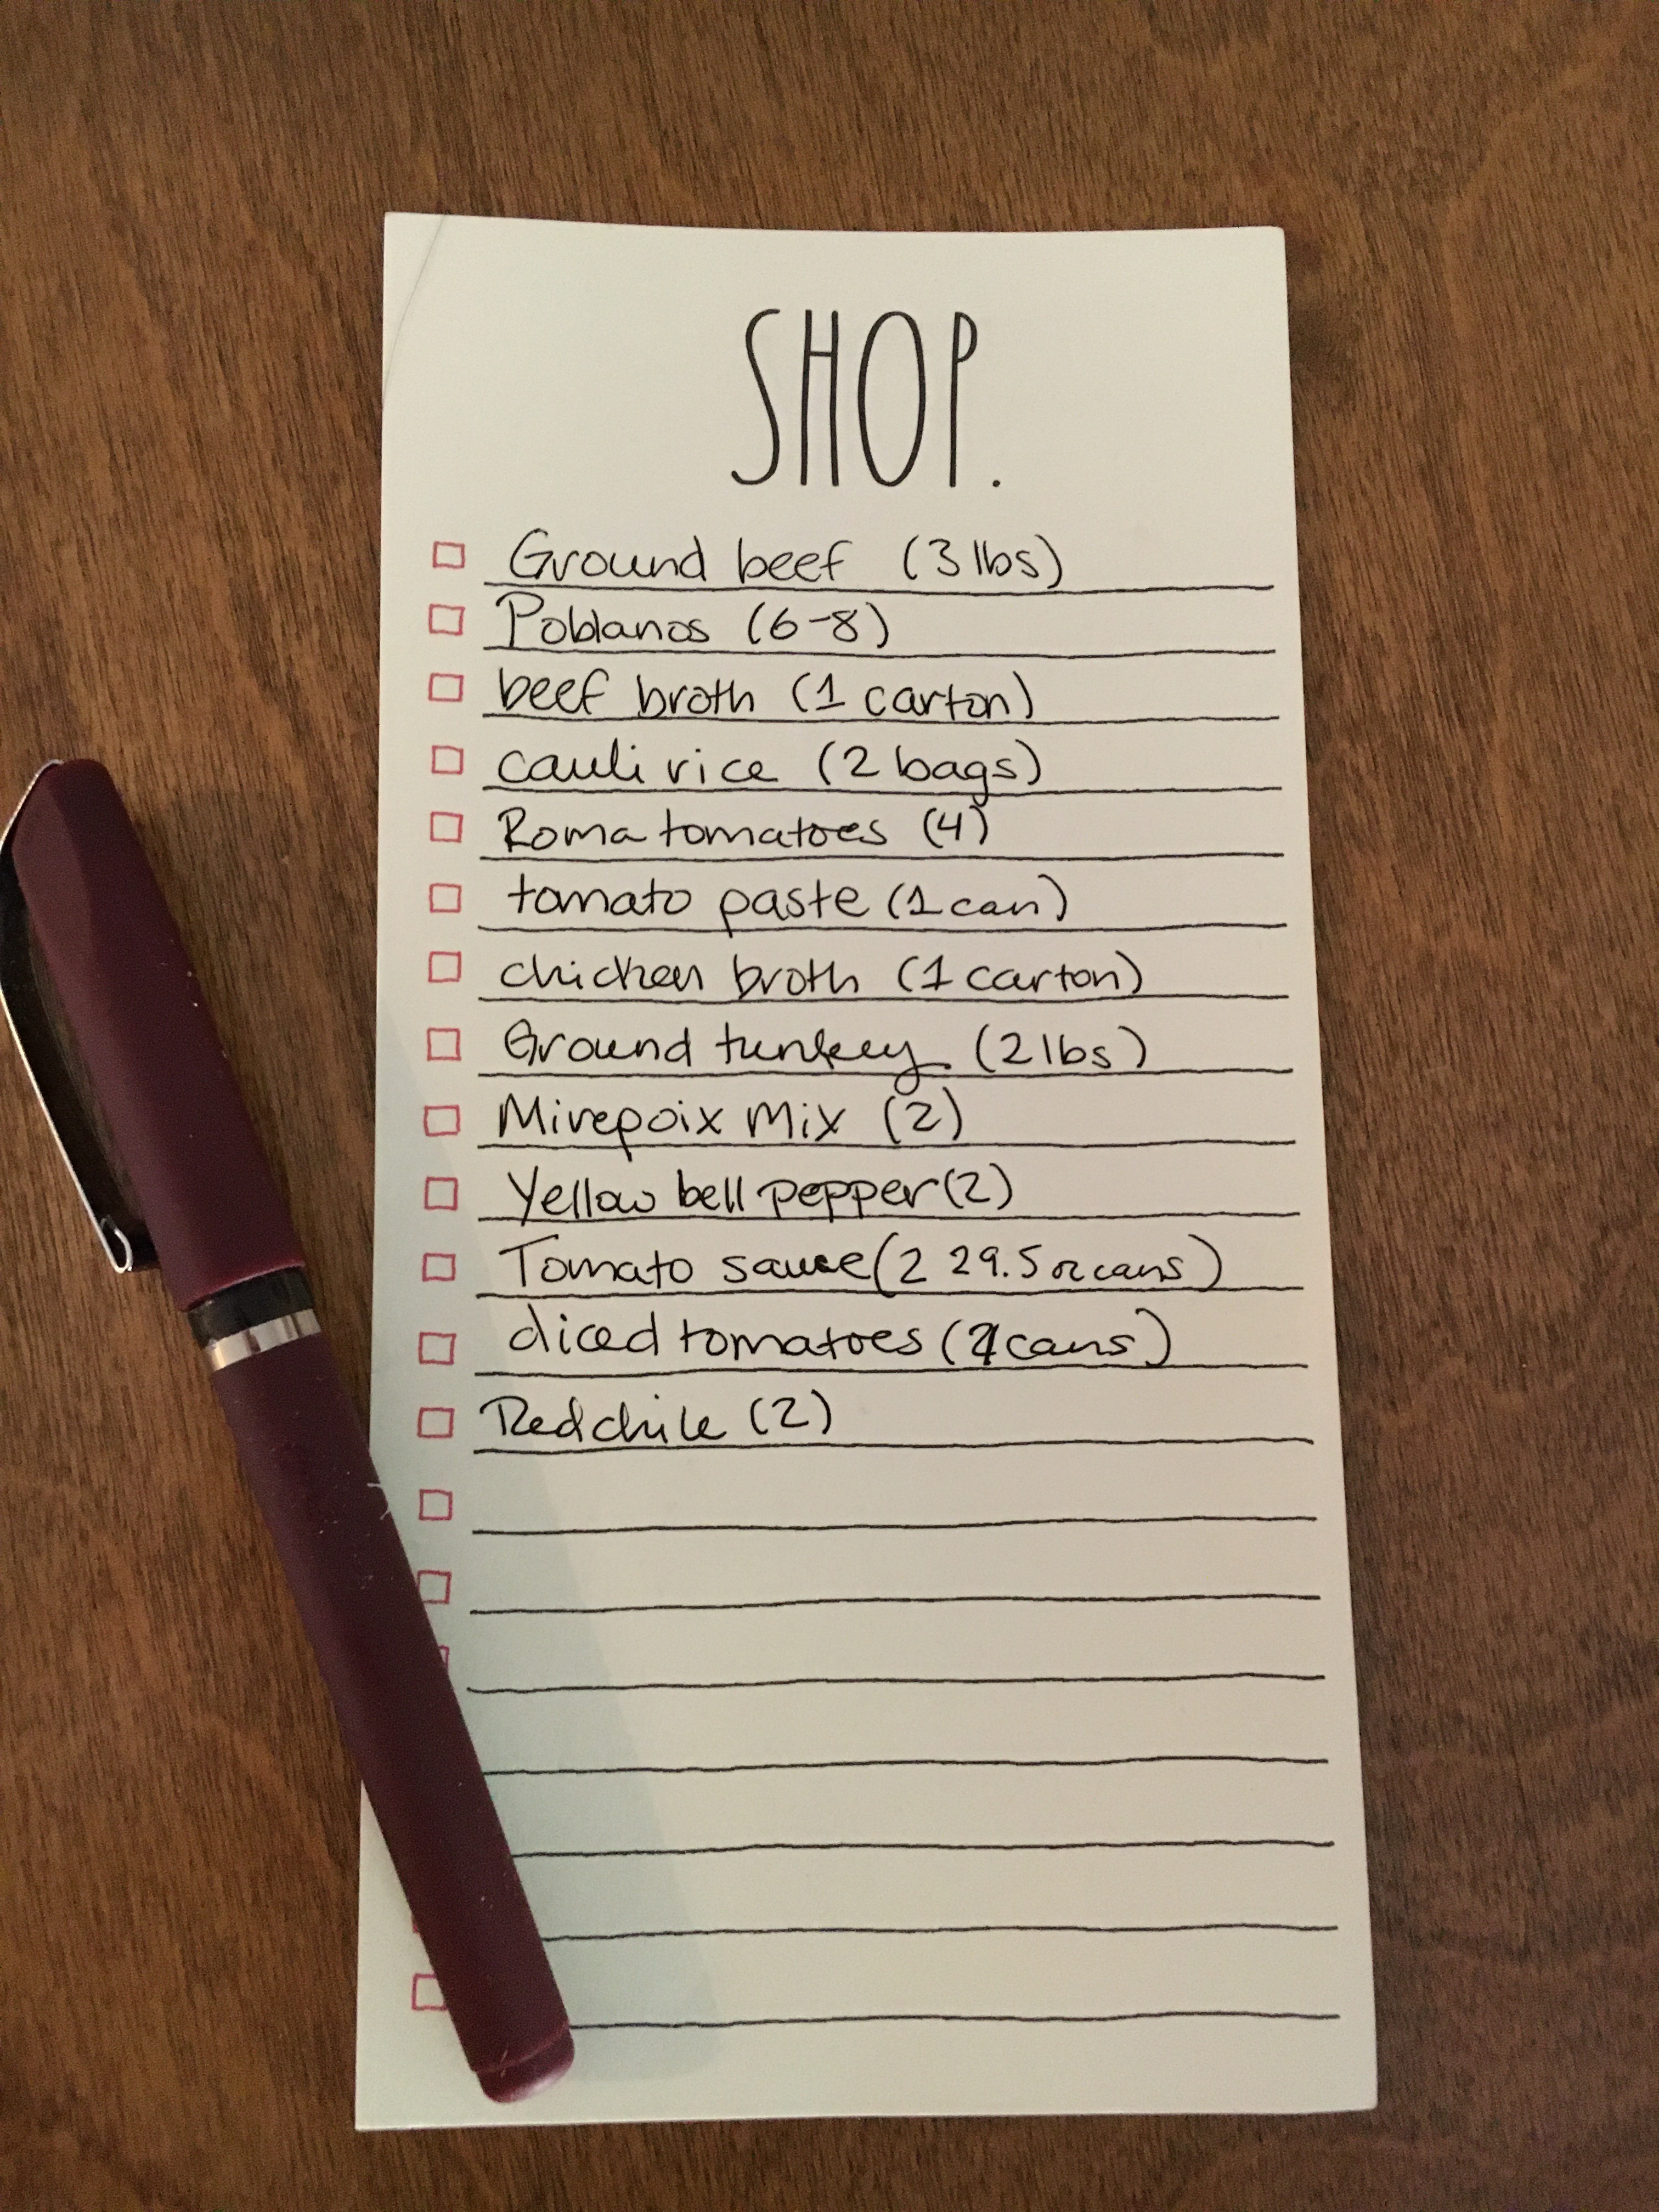 SHOP.
Ground beef (3 lbs)
Poblanos (6-8)
beef broth (1 carton)
cauli rice (2 bags)
Roma tomatoes (4)
tomato paste (1 can)
chicken broth (1 carton)
Ground turkey (2 lbs)
Mirepoix Mix (2)
Yellow bell pepper (2)
Tomato sauce (2 29.5 oz cans)
diced tomatoes (4 cans)
Red chile (2)